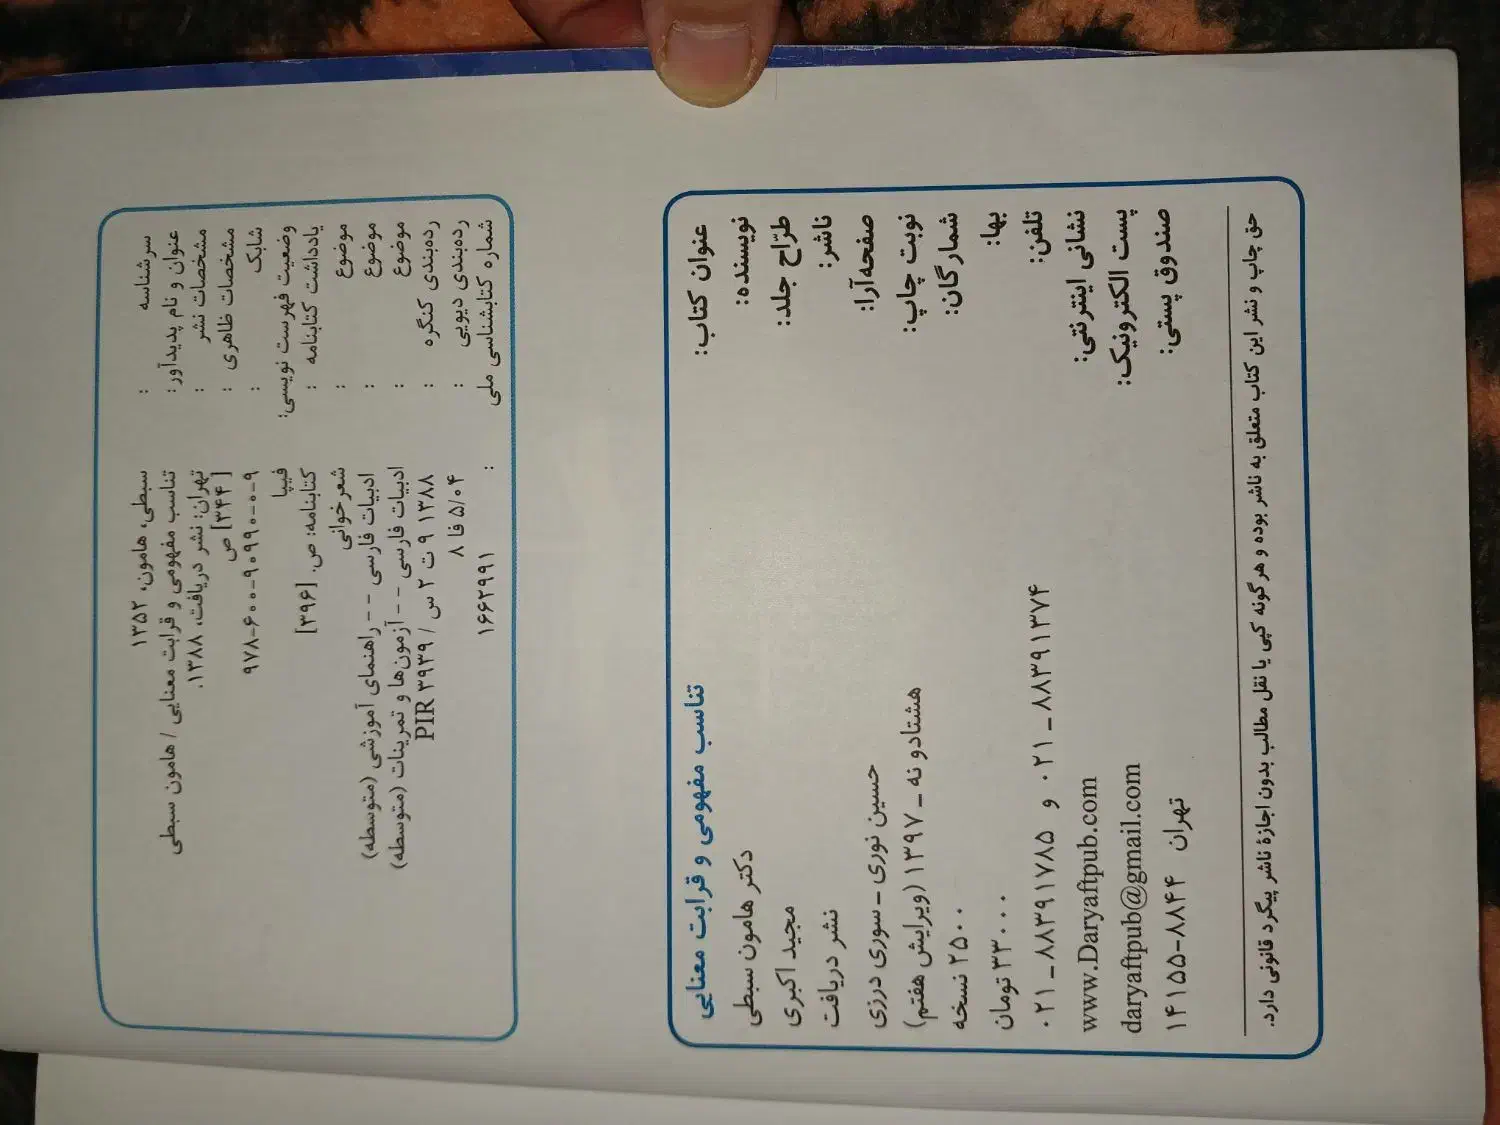 سرشناسه : سبطی، هامون، ۱۳۵۲
عنوان و نام پدیدآور : تناسب مفهومی و قرابت معنایی / هامون سبطی
مشخصات نشر : تهران: نشر دریافت، ۱۳۸۸.
مشخصات ظاهری : [۳۴۴] ص
شابک : ۹۷۸-۶۰۰-۹۰۹۹۰-۰-۹
وضعیت فهرست نویسی: فیپا
یادداشت کتابنامه : کتابنامه: ص. [۳۹۶]
موضوع : شعرخوانی
موضوع : ادبیات فارسی - - راهنمای آموزشی (متوسطه)
موضوع : ادبیات فارسی - - آزمون‌ها و تمرینات (متوسطه)
رده‌بندی کنگره : PIR ۳۹۳۹ / س ۲ ت ۹ ۱۳۸۸
رده‌بندی دیویی : ۸ فا ۵/۰۴
شماره کتابشناسی ملی : ۱۶۶۲۹۹۱
عنوان کتاب: تناسب مفهومی و قرابت معنایی
نویسنده: دکتر هامون سبطی
طرّاح جلد: مجید اکبری
ناشر: نشر دریافت
صفحه‌آرا: حسین نوری ـ سوری درزی
نوبت چاپ: هشتادو نه ـ ۱۳۹۷ (ویرایش هفتم)
شمارگان: ۲۵۰۰ نسخه
بها: ۳۳۰۰۰ تومان
تلفن: ۸۸۳۹۱۷۸۵ ـ ۰۲۱ و ۸۸۳۹۱۳۷۴ ـ ۰۲۱
نشانی اینترنتی: www.Daryaftpub.com
پست الکترونیک: daryaftpub@gmail.com
صندوق پستی: تهران ۸۸۴۴-۱۴۱۵۵
حق چاپ و نشر این کتاب متعلق به ناشر بوده و هرگونه کپی یا نقل مطالب بدون اجازهٔ ناشر پیگرد قانونی دارد.